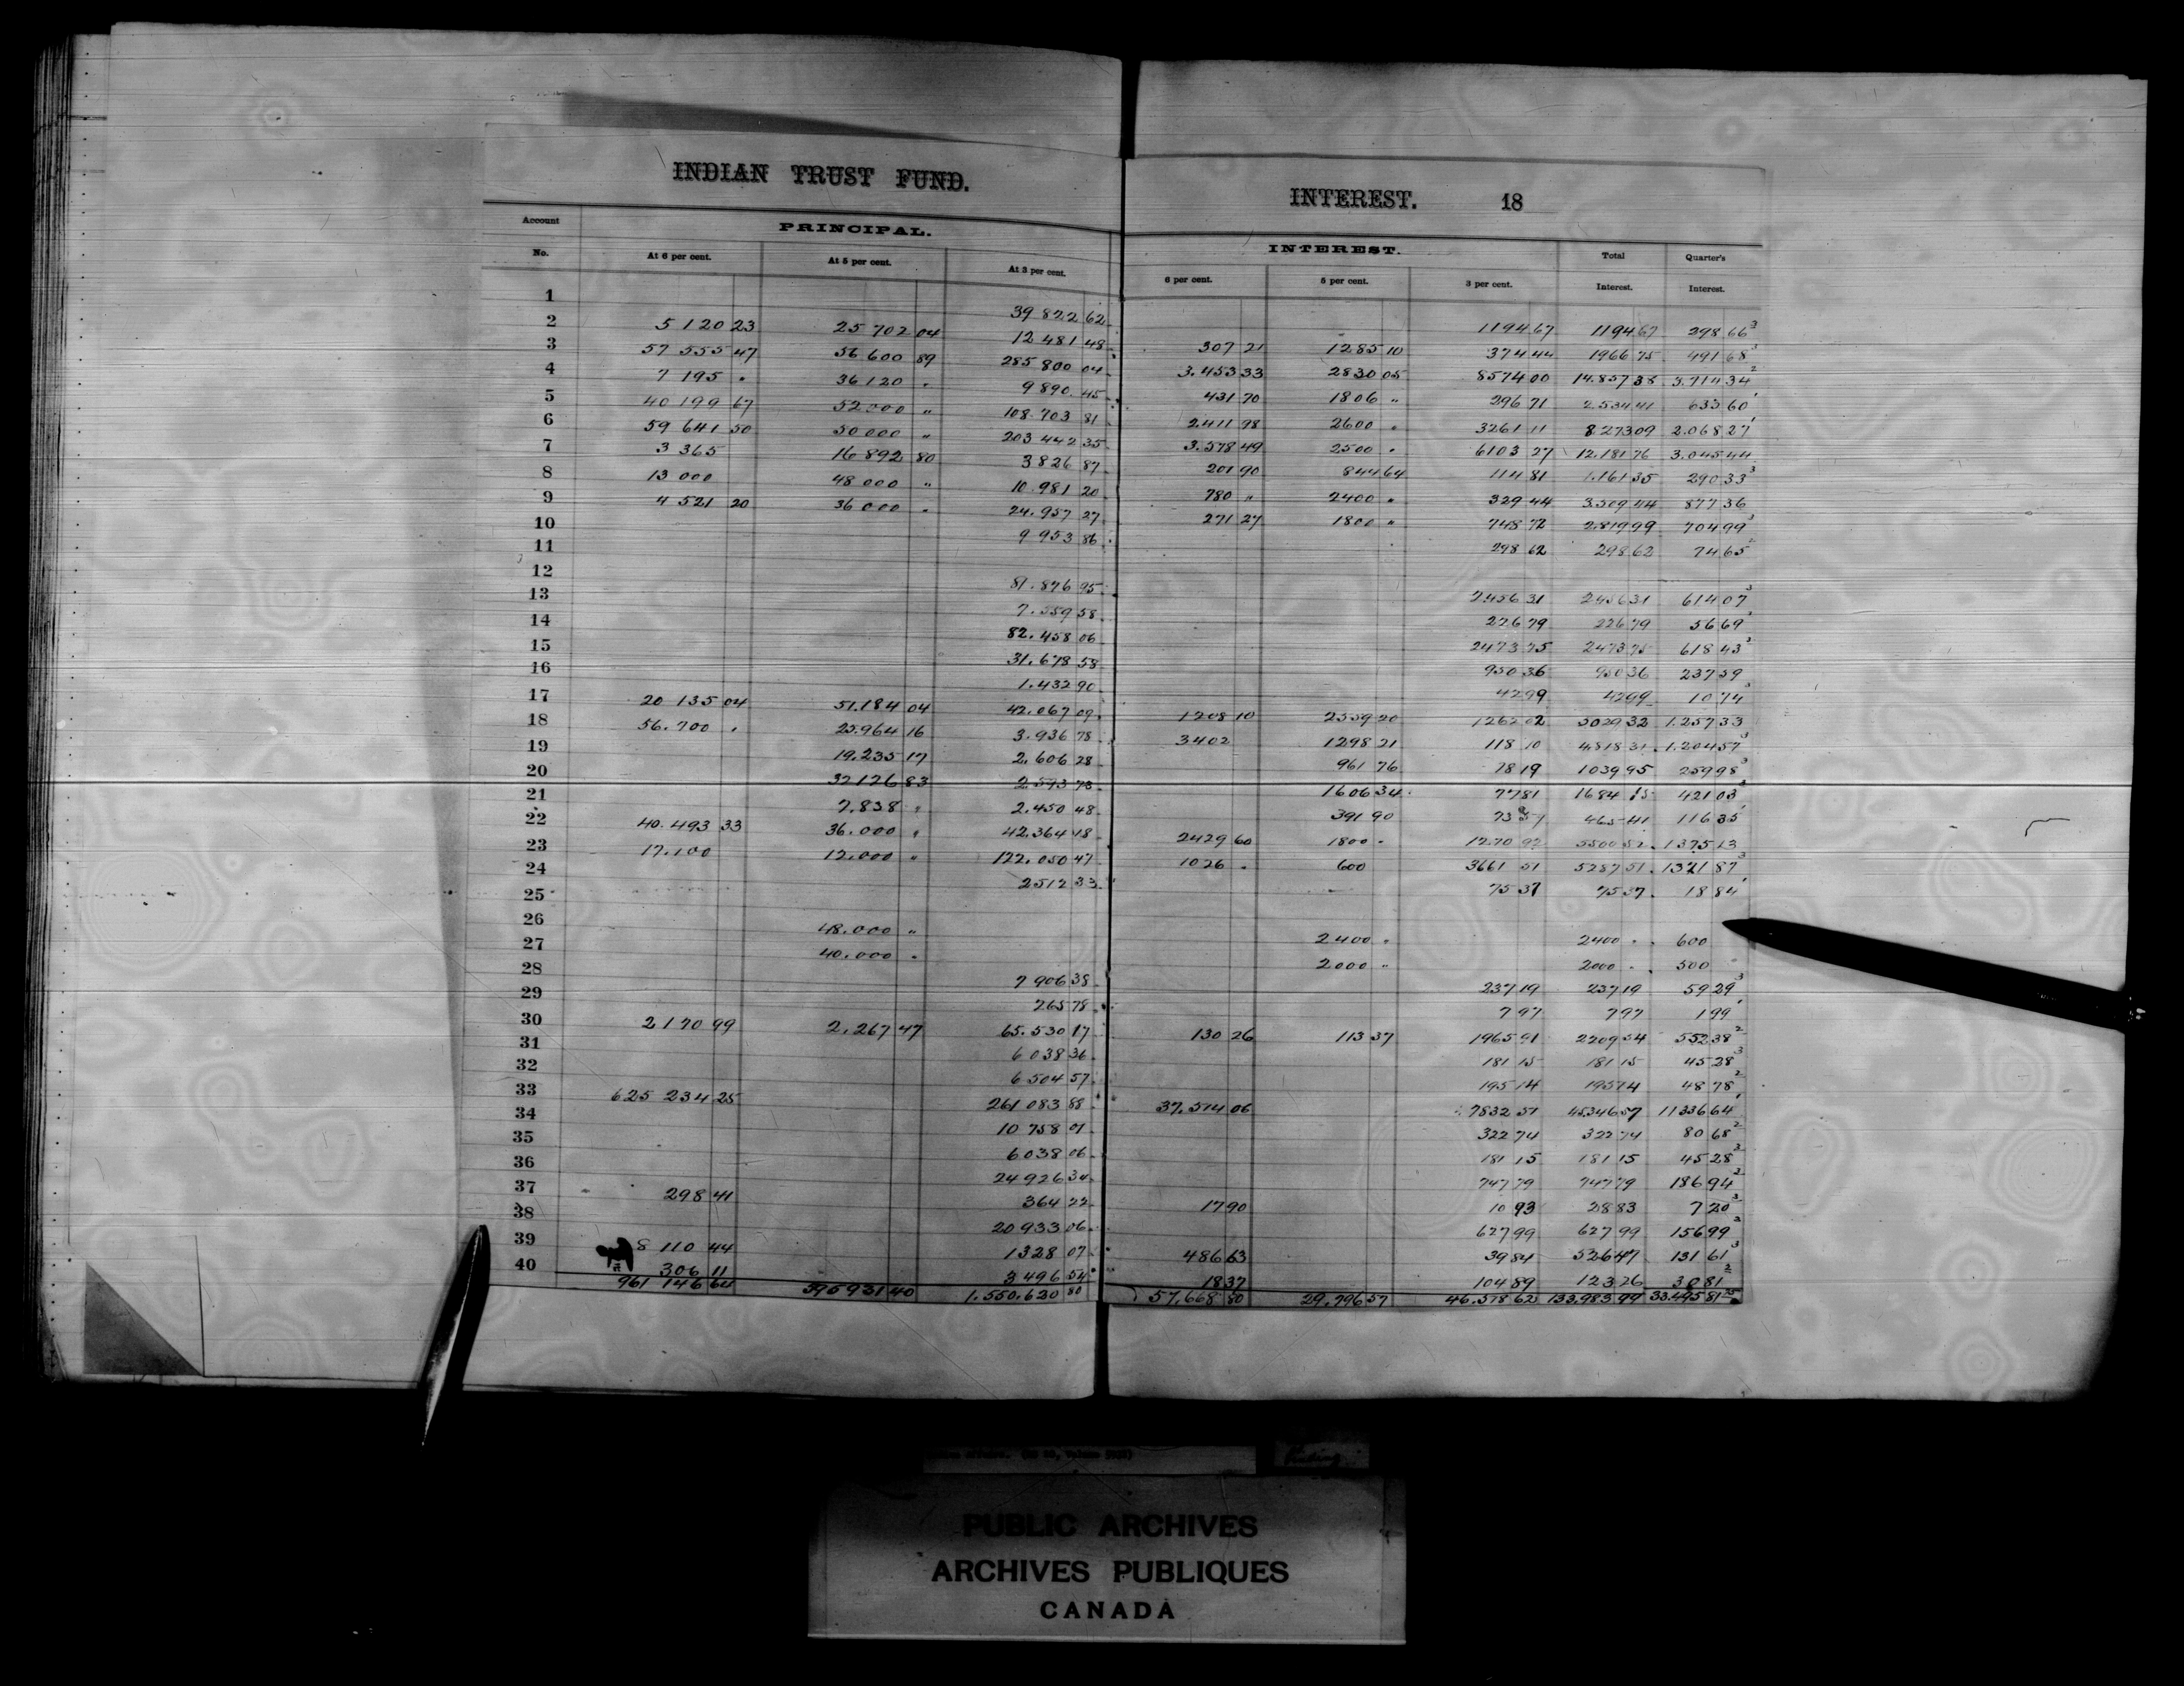 INDIAN TRUST FUND. INTEREST. 18
Account PRINCIPAL. INTEREST. Total Quarter's
No. At 6 per cent. At 5 per cent. At 3 per cent. 6 per cent. 5 per cent. 3 per cent. Interest. Interest.
1 39 822 62 1194 67 1194 67 298 66 3
2 5 120 23 25 702 04 12 481 48 307 21 1285 10 374 44 1966 75 491 68 3
3 57 555 47 56 600 89 285 800 04 3.453 33 2830 05 8574 00 14.857 38 3.714 34 2
4 7 195 " 36 120 " 9 890 45 431 70 1806 " 296 71 2.534 41 633 60 1
5 40 199 67 52 000 " 108 703 81 2.411 98 2600 " 3261 11 8.273 09 2.068 27 1
6 59 641 50 50 000 " 203 442 35 3.578 49 2500 " 6103 27 12.181 76 3.045 44
7 3 365 16 892 80 3 826 87 201 90 844 64 114 81 1.161 35 290 33 3
8 13 000 48 000 " 10 981 20 780 " 2400 " 329 44 3.509 44 877 36
9 4 521 20 36 000 " 24.957 27 271 27 1800 " 748 72 2.819 99 704 99 3
10 9 953 86 298 62 298 62 74 65 2
11
12 81.876 95 2456 31 2456 31 614 07 3
13 7.559 58 226 79 226 79 56 69 3
14 82.458 06 2473 75 2473 75 618 43 3
15 31.678 58 950 36 950 36 237 59
16 1.432 90 42 99 42 99 10 74 3
17 20 135 04 51.184 04 42.067 09 1208 10 2559 20 1262 02 5029 32 1.257 33
18 56.700 " 25.964 16 3.936 78 3402 1298 21 118 10 4818 31 1.204 57 3
19 19.235 17 2.606 28 961 76 78 19 1039 95 259 98 3
20 32 126 83 2.593 73 1606 34 77 81 1684 15 421 03 3
21 7.838 " 2.450 48 391 90 73 51 465 41 116 35 1
22 40.493 33 36.000 " 42.364 18 2429 60 1800 " 1270 92 5500 52 1375 13
23 17.100 12.000 " 122.050 47 1026 " 600 3661 51 5287 51 1321 87 3
24 2512 33 75 37 75 37 18 84 1
25
26 48.000 " 2400 " 2400 " 600
27 40.000 " 2000 " 2000 " 500
28 7 906 38 237 19 237 19 59 29 3
29 265 78 7 97 7 97 1 99 1
30 2 170 99 2.267 47 65.530 17 130 26 113 37 1965 91 2209 54 552 38 2
31 6 038 36 181 15 181 15 45 28 3
32 6 504 57 195 14 195 14 48 78 2
33 625 234 25 261 083 88 37.514 06 7832 51 45.346 57 11336 64 1
34 10 758 01 322 74 322 74 80 68 2
35 6 038 06 181 15 181 15 45 28 3
36 24 926 34 747 79 747 79 186 94 3
37 298 41 364 22 17 90 10 93 28 83 7 20 3
38 20 933 06 627 99 627 99 156 99 3
39 8 110 44 1 328 07 486 63 39 84 526 47 131 61 3
40 306 11 3 496 54 18 37 104 89 123 26 30 81 2
961 146 64 595 931 40 1.550.620 80 57.668 80 29.796 57 46.518 62 133.983 99 33.495 81
PUBLIC ARCHIVES
ARCHIVES PUBLIQUES
CANADA